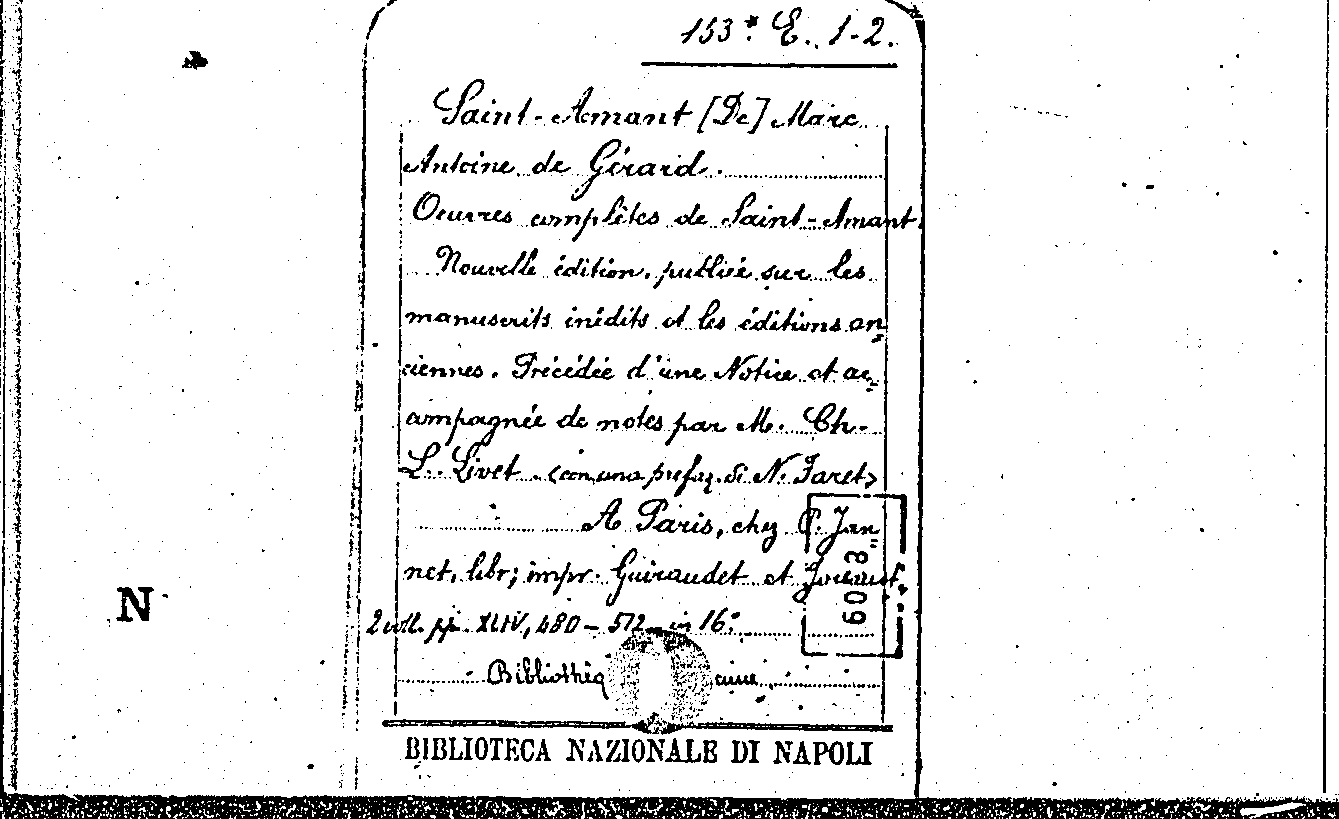 153.* E. 1-2.
Saint-Amant [De] Marc
Antoine de Gérard.
Oeuvres complètes de Saint-Amant.
Nouvelle édition, publiée sur les
manuscrits inédits et les éditions an=
ciennes. Précédée d'une Notice et ac=
compagnée de notes par M. Ch-
L. Livet. (con una prefaz. di N. Faret)
A Paris, chez P. Jan=
net, libr; impr. Guiraudet et Jouaust.
2 voll. pp. XLIV, 480 - 512 in 16.°
6038
N
BIBLIOTECA NAZIONALE DI NAPOLI